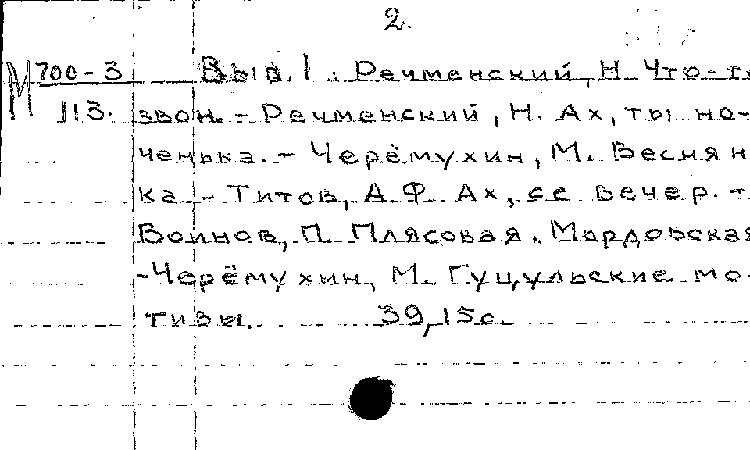 2.
М 700-3 Вып. 1. Речменский, Н. Что-т
113. звон. - Речменский, Н. Ах, ты но-
ченька. - Черёмухин, М. Веснян
ка - Титов, А.Ф. Ах, се вечер. -
Воинов, П. Плясовая. Мордовская
-Черёмухин, М. Гуцульские мо-
тивы. 39,15с.